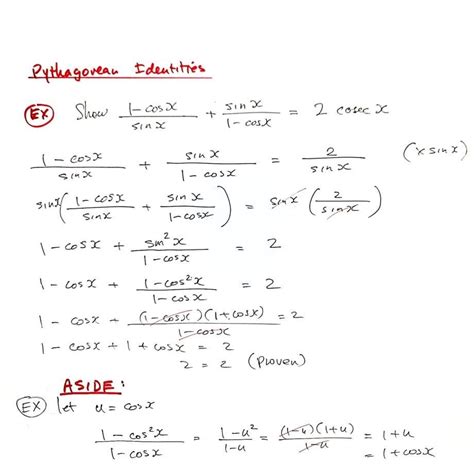 Pythagorean Identities
EX Show (1-cosx)/(sinx) + (sinx)/(1-cosx) = 2 cosec x
(1-cosx)/(sinx) + (sinx)/(1-cosx) = 2/(sinx) (x sinx)
sinx((1-cosx)/(sinx) + (sinx)/(1-cosx)) = sinx(2/(sinx))
1-cosx + (sin²x)/(1-cosx) = 2
1-cosx + (1-cos²x)/(1-cosx) = 2
1-cosx + ((1-cosx)(1+cosx))/(1-cosx) = 2
1-cosx+1+cosx = 2
2 = 2 (Proven)
ASIDE:
EX let u = cosx
(1-cos²x)/(1-cosx) = (1-u²)/(1-u) = ((1-u)(1+u))/(1-u) = 1+u
= 1+cosx